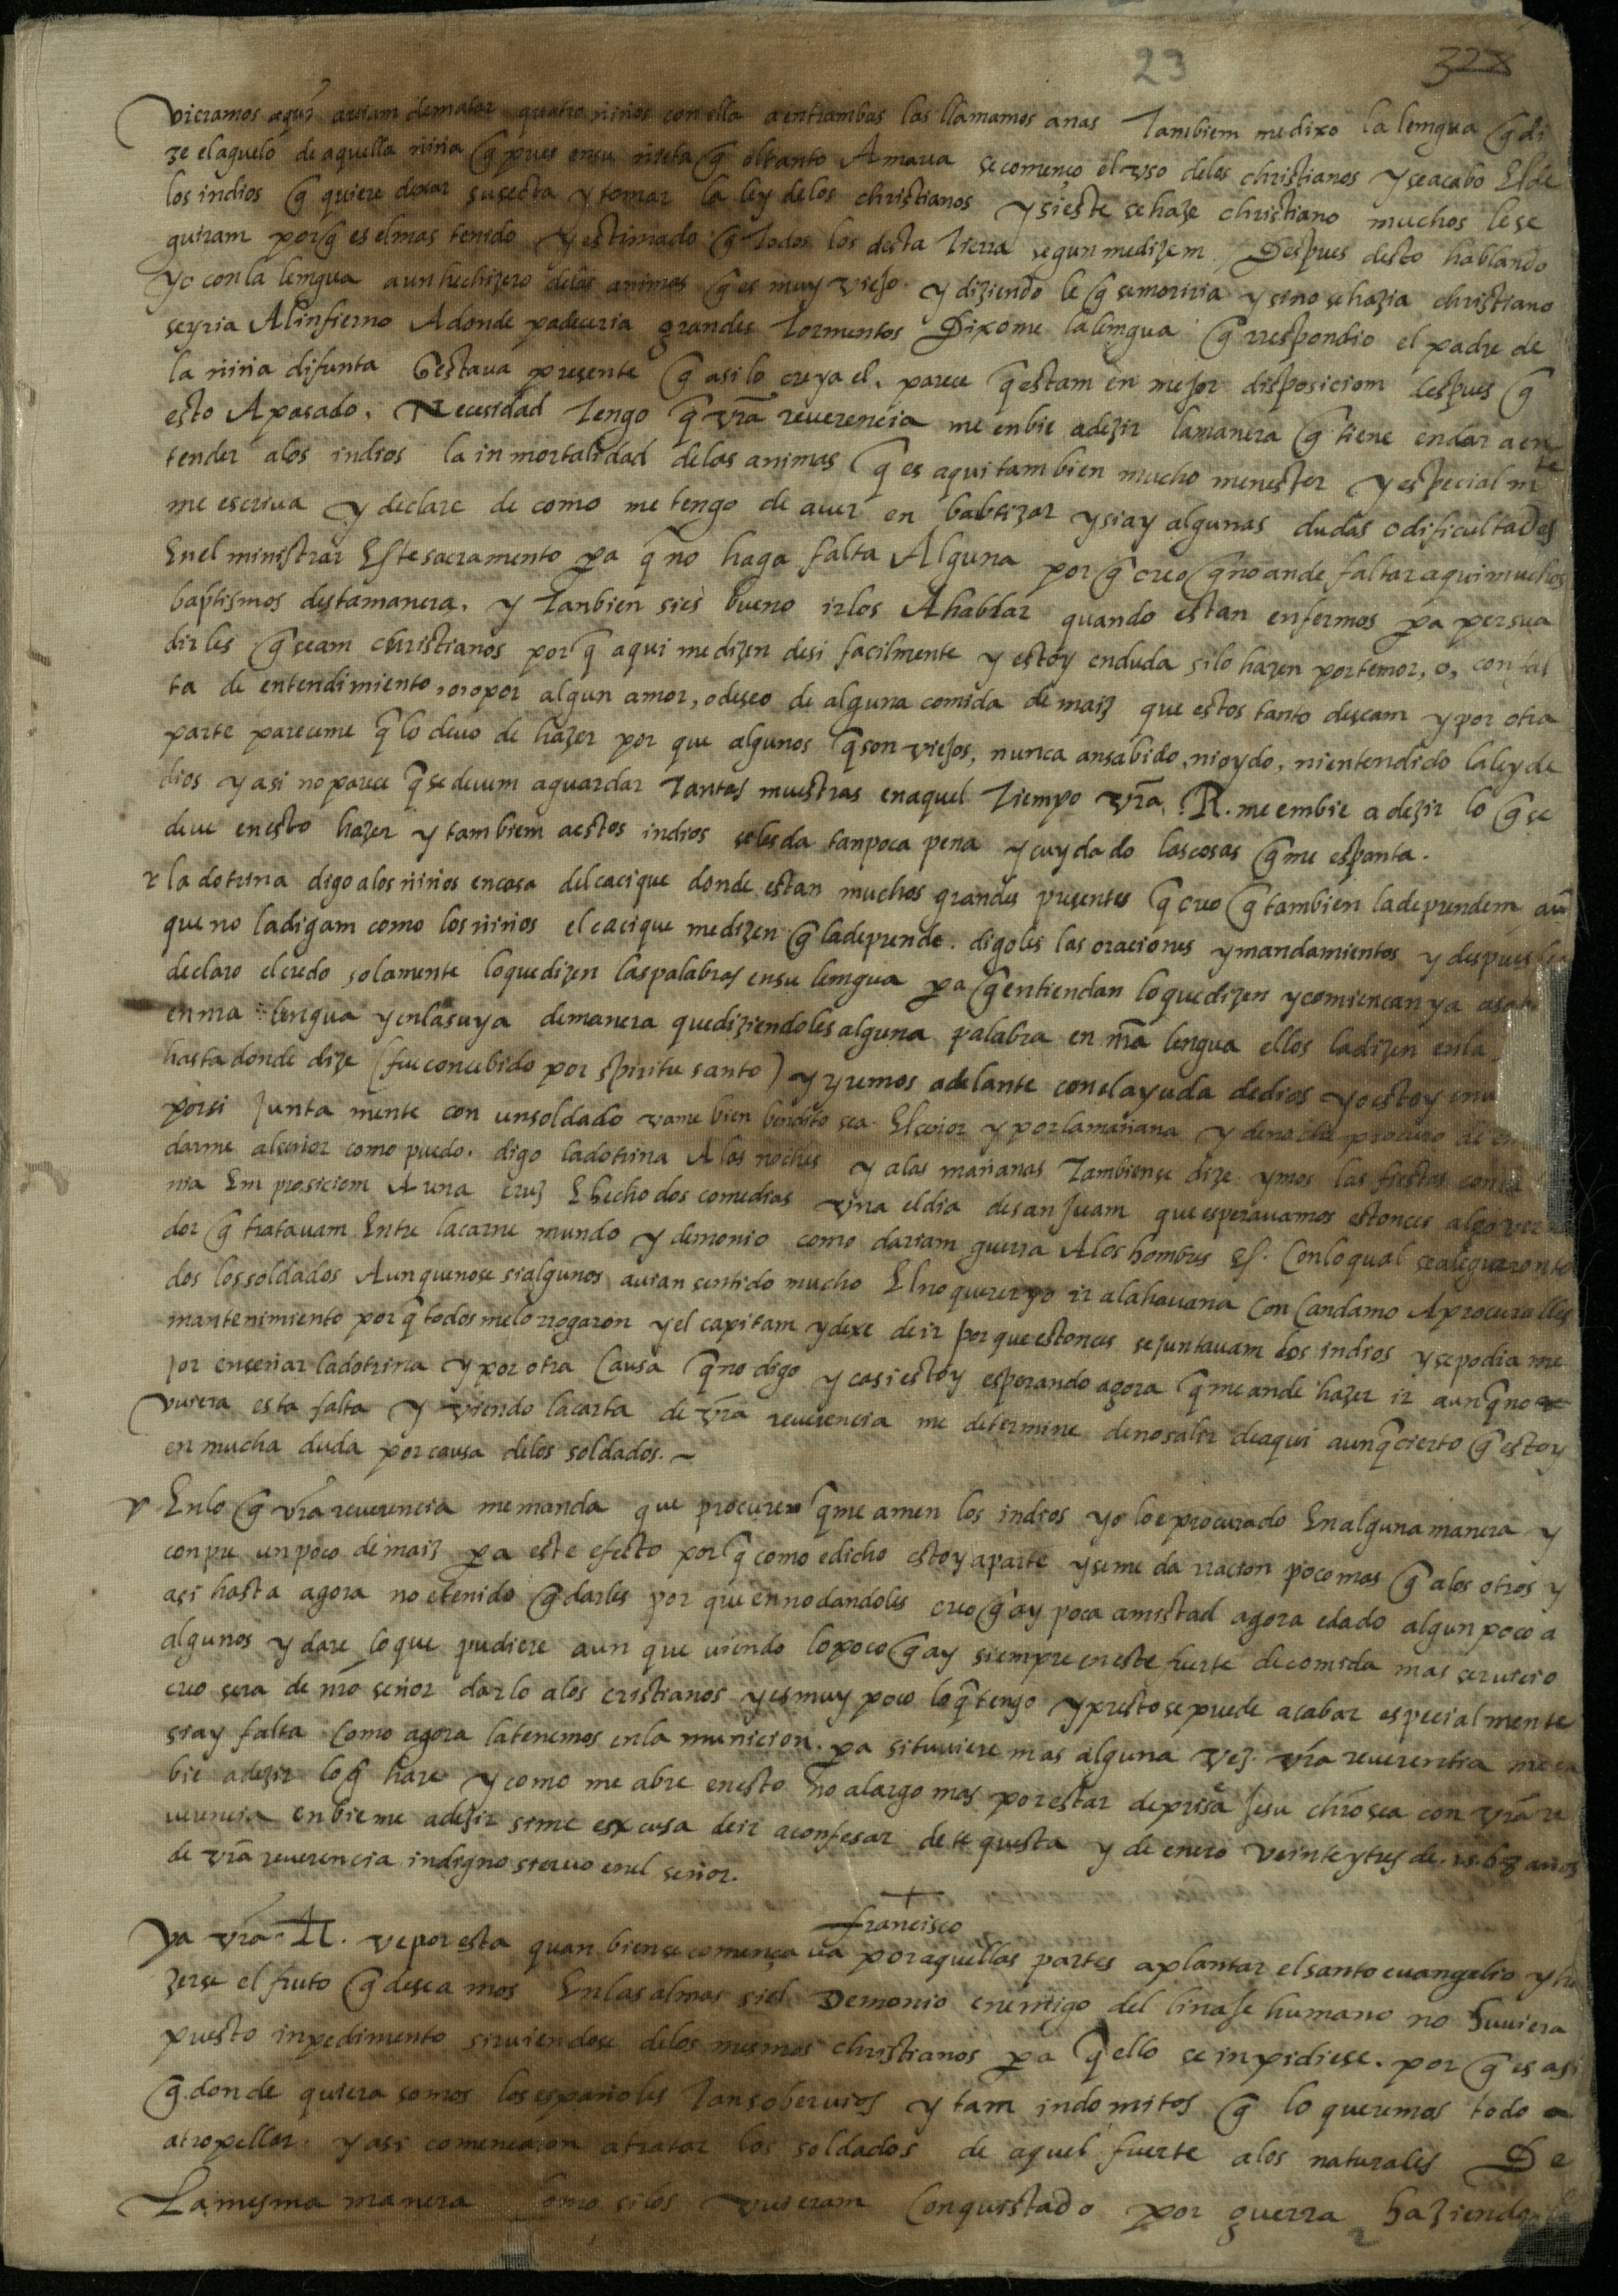 23 328
vieramos aqui avian de matar quatro niños con ella a entrambas las llamamos anas Tambiem me dixo la lemgua q̃ di
ze el aguelo de aquella niña q̃ pues en su nieta q̃ el tanto Amava se començo el uso delos christianos y se acabo El de
los indios q̃ quiere dexar su secta y tomar la ley delos christianos y si este se haze christiano muchos le se
guiram porq̃ es el mas tenido y estimado q̃ Todos los desta Tierra segun me dizem. Despues desto hablando
yo con la lemgua a un hechizero delas animas q̃ es muy viejo. y diziendo le q̃ se moriria y si no se hazia christiano
se yria Al infierno Adonde padeceria grandes Tormentos Dixome la lemgua q̃ rrespondio el padre de
la niña difunta q̃ estava presente q̃ asi lo creya el. parece q̃ estam en mejor disposiciom despues q̃
esto A pasado. Necesidad Tengo q̃ vr̃a reverencia me enbie a dezir la manera q̃ tiene en dar a en
tender alos indios la inmortalidad delas animas q̃ es aqui tambien mucho menester y especialmte
me escriva y declare de como me tengo de aver en babtizar y si ay algunas dudas o dificultades
En el ministrar Este sacramento pa q̃ no haga falta Alguna por q̃ creo q̃ no an de faltar aqui muchos
baptismos desta manera. y Tanbien si es bueno irlos A hablar quando estan enfermos pa persua
dirles q̃ seam christianos por q̃ aqui me dizen de si facilmente y estoy en duda si lo hazen por temor, o, con fal
ta de entendimiento, o por algun amor, o deseo de alguna comida de maiz que estos tanto deseam y por otra
parte pareceme q̃ lo devo de hazer por que algunos q̃ son viejos, nunca an sabido, ni oydo, ni entendido la ley de
dios y asi no parece q̃ se devem aguardar Tantas muestras en aquel Tiempo vr̃a. R. me embie a dezir lo q̃ se
deve en esto hazer y tambiem a estos indios seles da tan poca pena y cuydado las cosas q̃ me espanta.
r la dotrina digo alos niños en casa del cacique donde estan muchos grandes presentes q̃ creo q̃ tambien la deprendem aũ
que no la digam como los niños el cacique me dizen q̃ la deprende. digoles las oraciones y mandamientos y despues les
declaro el credo solamente lo que dizen las palabras en su lemgua pa q̃ entiendan lo que dizen y comiençan ya a
en nr̃a lengua y en la suya de manera que diziendoles alguna palabra en nr̃a lengua ellos la dizen en la
hasta donde dize (fue concebido por spiritu santo) y yremos adelante con el ayuda de dios yo estoy en
por si junta mente con un soldado vame bien bendito sea El señor y por la mañana y de noche procuro de
darme al señor como puedo. digo la dotrina A las noches y a las mañanas Tambien se dize ymos las fiestas con
nia Em prosiciom A una cruz E hecho dos comedias una el dia de san Juam que esperavamos estonces al gover
dor q̃ tratavam Entre la carne mundo y demonio como dariam guerra A los hombres &. Con lo qual se alegraron to
dos los soldados Aunque no se si algunos avian sentido mucho El no querer yo ir a la havana con Candamo A procuralles
mantenimiento por q̃ todos me lo rrogaron y el capitam y dexe de ir porque estonces se juntavam los indios y se podia me
jor enseñar la dotrina y por otra Causa q̃ no digo y casi estoy esperando agora q̃ me an de hazer ir aunq̃ no
vuiera esta falta y viendo la carta de vr̃a reverencia me determine de no salir de aqui aunq̃ cierto q̃ estoy
en mucha duda por causa delos soldados. ~
r En lo q̃ vr̃a reverencia me manda que procure q̃ me amen los indios yo lo e procurado En alguna manera y
conpre un poco de maiz pa este efecto por q̃ como e dicho estoy aparte y se me da rracion poco mas q̃ a los otros y
asi hasta agora no e tenido q̃ darles por que en no dandoles creo q̃ ay poca amistad agora e dado algun poco a
algunos y dare lo que pudiere aun que viendo lo poco q̃ ay siempre en este fuerte de comida mas servicio
creo sera de nr̃o señor darlo alos cristianos y es muy poco lo q̃ tengo y presto se puede acabar especialmente
si ay falta Como agora la tenemos en la municion. pa si tuviere mas alguna vez. vr̃a reverentia me en
bie a dezir lo q̃ hare y como me abre en esto no alargo mas por estar de prisa Jesu chr̃o sea con vr̃a re
verencia enbie me a dezir si me escusa de ir a confesar de te questa y de enero veinte y tres de. 1568 años
de vr̃a reverencia indigno siervo en el señor.
+
francisco
Ya vr̃a R. ve por esta quan bien se començava por aquellas partes a plantar el santo evangelio y ha
zerse el fruto q̃ deseamos En las almas si el Demonio enemigo del linaje humano no huviera
puesto inpedimento sirviendose delos mesmos christianos pa q̃ ello se inpidiese. por q̃ es asi
q̃. donde quiera somos los españoles Tan sobervios y tam indomitos q̃ lo queremos todo
atropellar. y asi començaron a tratar los soldados de aquel fuerte alos naturales De
La mesma manera como si los vuieram Conquistado por guerra haziendo